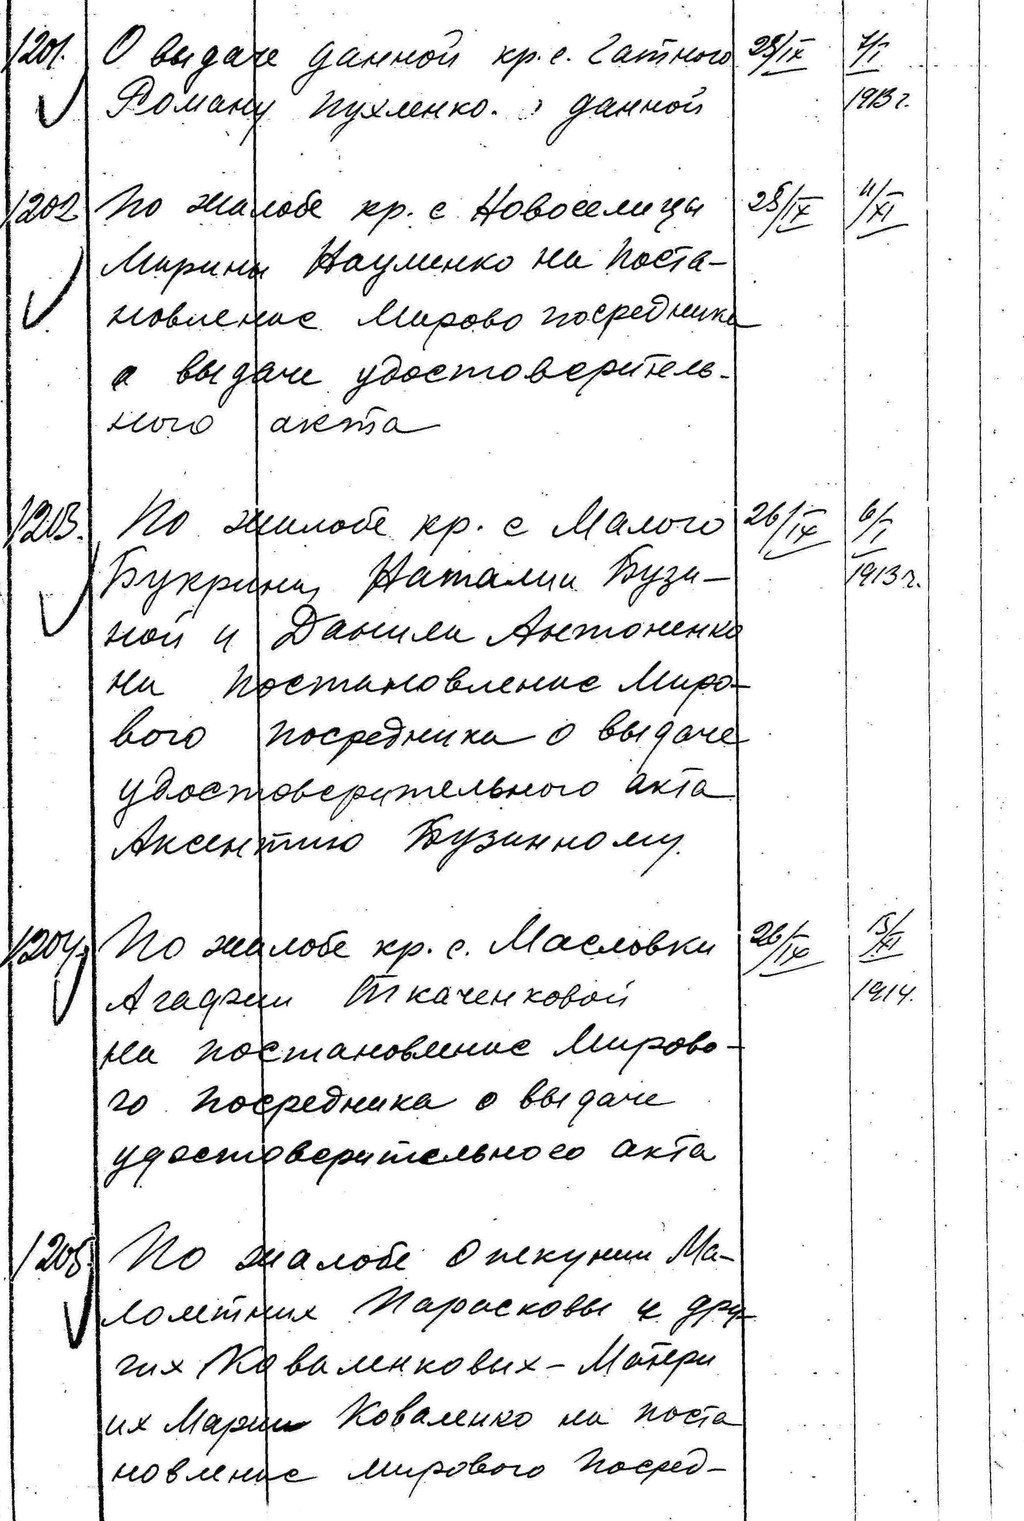 1201. О выдаче данной кр. с. Гатного 28/IX 7/I
Роману Пухленко. данной 1913 г.
1202 По жалобе кр. с Новоселица 28/IX 4/XI
Марины Науменко на Поста-
новление Мирово посредника
о выдаче удостоверитель-
ного акта
1203. По жалобе кр. с Малого 26/IX 6/I
Букрина, Наталии Бузи- 1913 г.
ной и Данила Антоненко
на постановление Миро-
вого посредника о выдаче
удостоверительного акта
Аксентию Бузинному.
1204. По жалобе кр. с. Масловки 26/IX 15/XI
Агафии Ткаченковой 1914.
на постановление Мирово-
го посредника о выдаче
удостоверительного акта
1205. По жалобе Опекунии Ма-
лолетних Парасковы и дру-
гих Коваленковых - Матери
их Марии Коваленко на поста
новление мирового Посред-